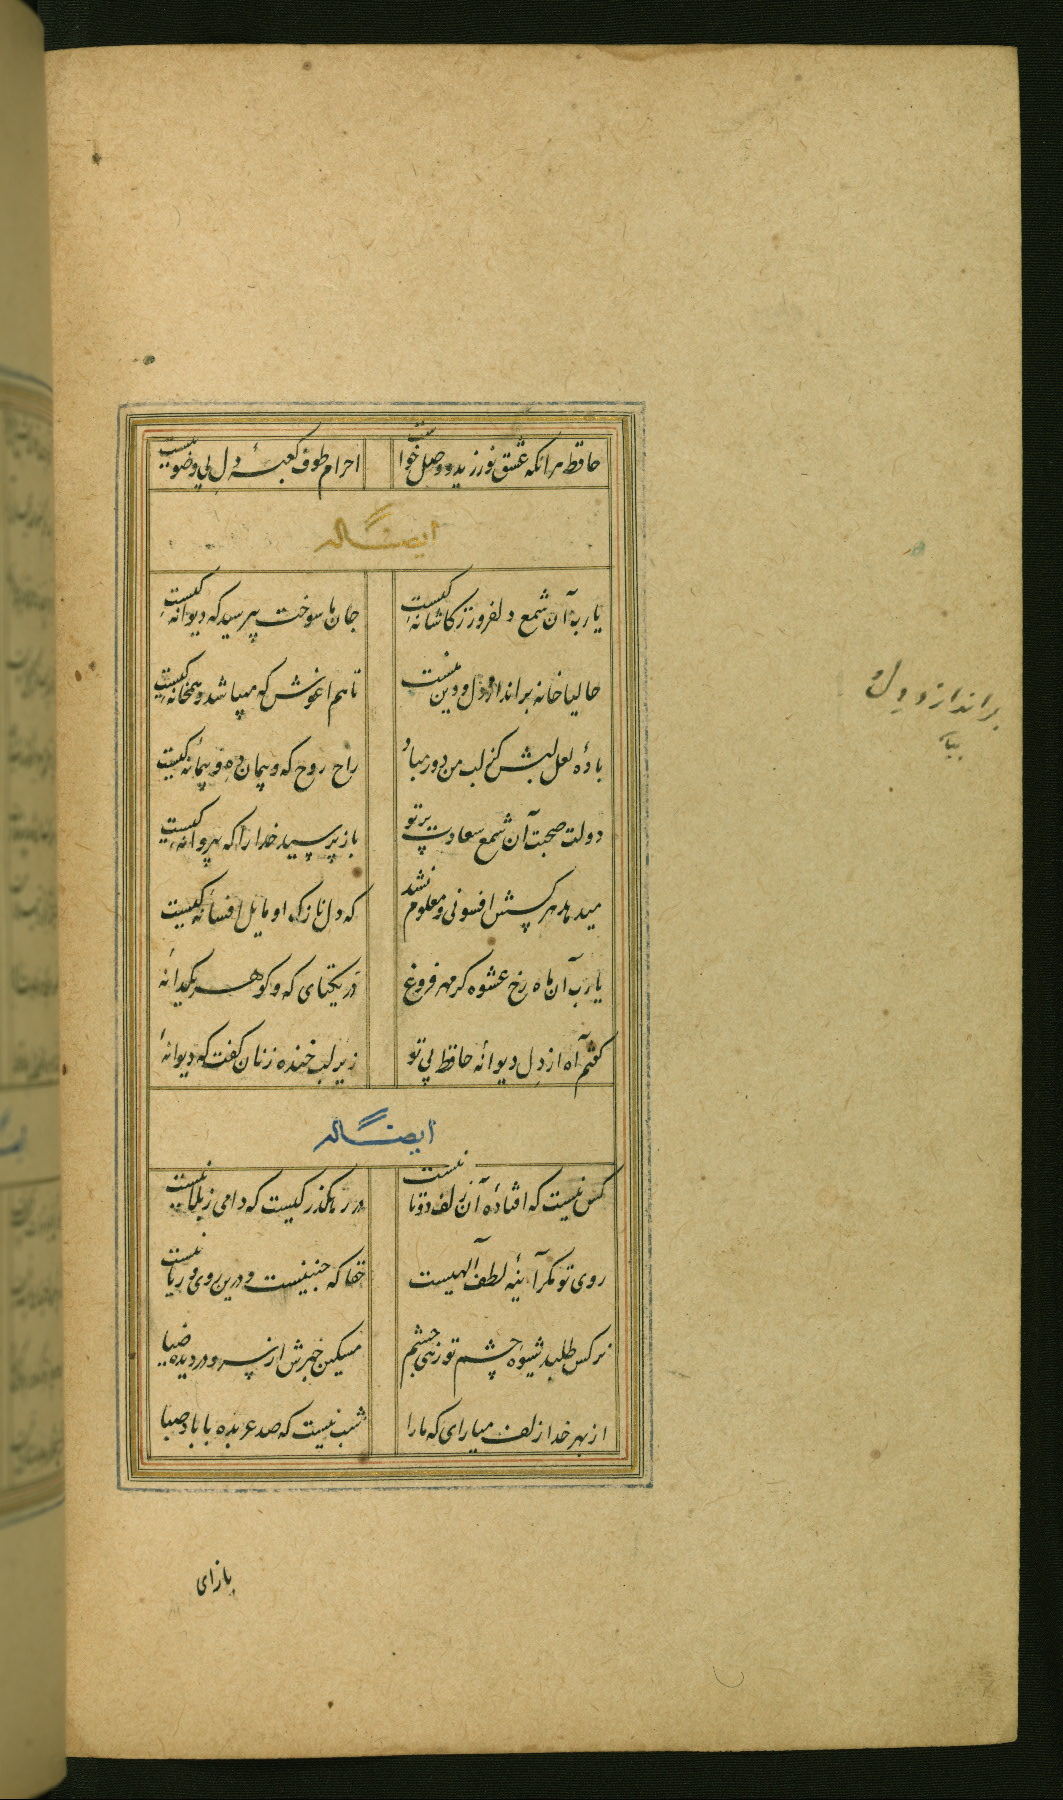 حافظ هرانکه عشق نورزید و وصل خواست احرام طوف کعبهٔ دل بی وضو ببست
ایضاً له
یارب آن شمع دلفروز ز کاشانه کیست جان ما سوخت بپرسید که دیوانه کیست
حالیا خانه برانداز و دل و دین منست تا هم اغوش که میباشد و همخانه کیست
بادهٔ لعل لبش کز لب من دور مباد راح روح که و پیمان ده و پیمانه کیست
دولت صحبت آن شمع سعادت پرتو باز پرسید خدا را که به پروانه کیست
میدهد هر کسش افسونی و معلوم نشد که دل نازک او مایل افسانه کیست
یارب آن ماه رخ عشوه کر مهر فروغ در یکتای که و کوهر یکدانهٔ
کفتم آه از دل دیوانه حافظ بی تو زیر لب خنده زنان کفت که دیوانهٔ
برانداز و دل و
ایضاً له
کس نیست که افتادهٔ آن زلف دوتا نیست در رهکذر کیست که دامی ز بلا نیست
روی تو مکر آینهٔ لطف آلهیست حقا که چنینست و درین روی و ریا نیست
نرکس طلبد شیوه چشم تو زهی چشم مسکین خبرش از سر و در دیده ضیا
از بهر خدا زلف میارای که ما را شب نیست که صد عربده با باد صبا
بازای